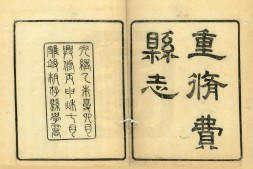 重脩費
縣志
光緒乙未夏六月
興脩丙申秋七月
雕竣板存縣學署